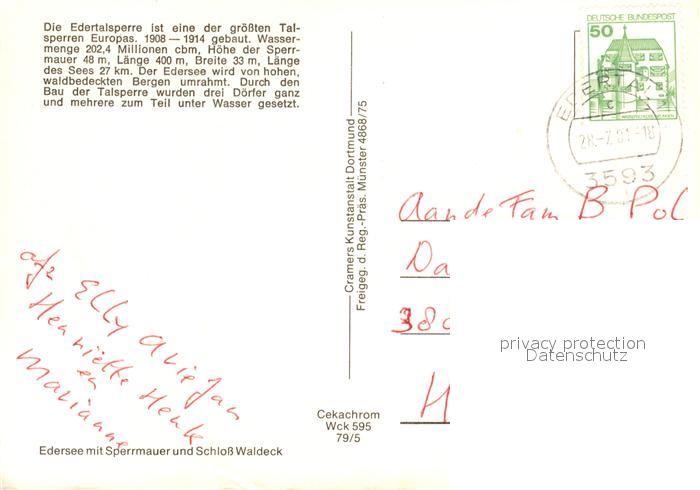 Die Edertalsperre ist eine der größten Tal-
sperren Europas. 1908 — 1914 gebaut. Wasser-
menge 202,4 Millionen cbm, Höhe der Sperr-
mauer 48 m, Länge 400 m, Breite 33 m, Länge
des Sees 27 km. Der Edersee wird von hohen,
waldbedeckten Bergen umrahmt. Durch den
Bau der Talsperre wurden drei Dörfer ganz
und mehrere zum Teil unter Wasser gesetzt.
DEUTSCHE BUNDESPOST
50
EDERTAL
c
28.-7.81-18
3593
Cramers Kunstanstalt Dortmund
Freigeg. d. Reg.-Präs. Münster 4868/75
Aan de Fam B Pol
Da
380
H
privacy protection
Datenschutz
afz Elly Ariejan
Henriëtte Henk
en
Marianne
Cekachrom
Wck 595
79/5
Edersee mit Sperrmauer und Schloß Waldeck